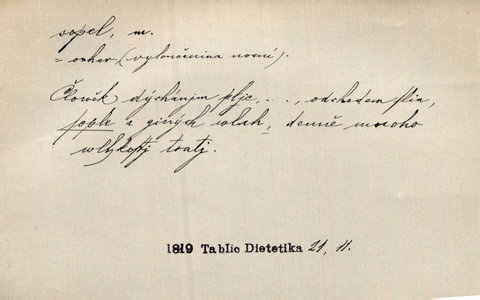 sopel, m.
= ozher (vyloučenina nosní).
Člowěk dýchánjm pljc, . . . , odchodem slin,
sople a giných wlah, denně mnoho
wlhkosti tratj.
1819 Tablic Dietetika 21, 11.